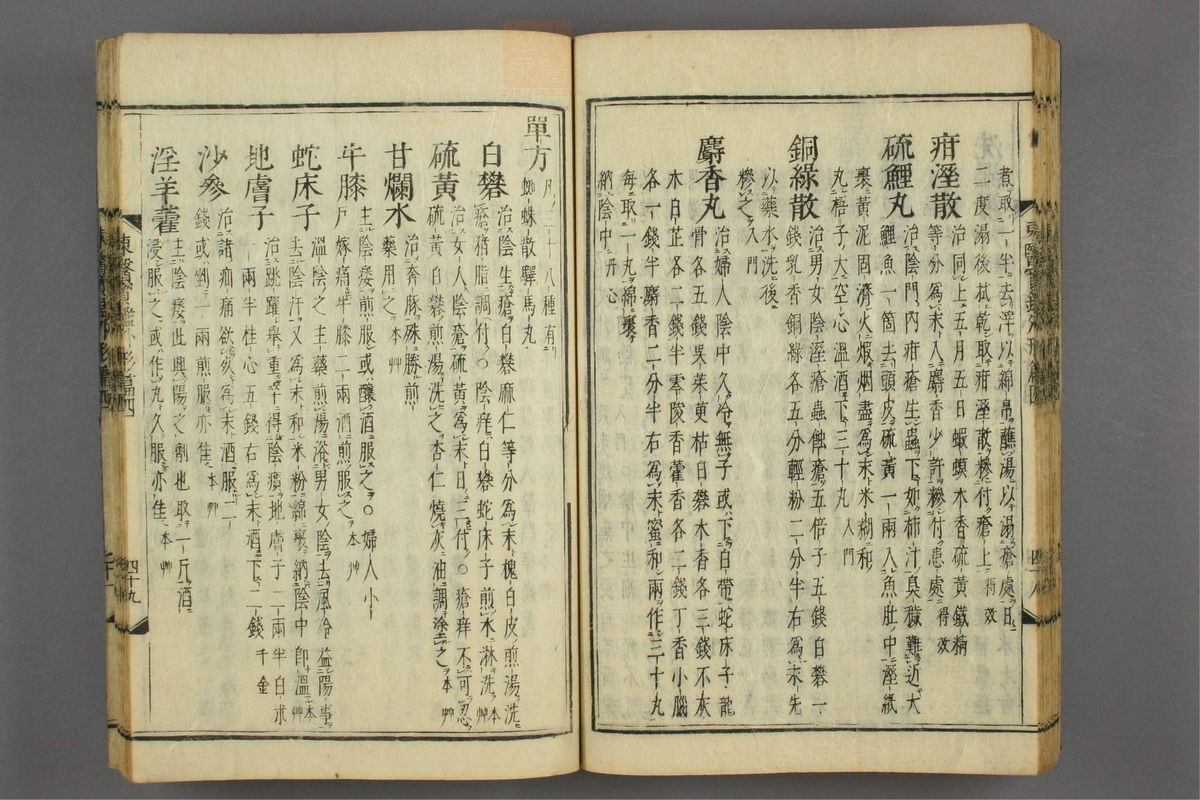 煮取一半去滓以綿帛蘸湯以湯瘡處日
二度湯後拭乾取疳溼散糝付瘡上 得效
疳溼散 治同上五月五日蝦蟆木香硫黃鐵精
等分爲末入麝香少許糝付患處 得效
硫鯉丸 治陰門內疳瘡生蟲下如柿汁臭穢難近大
鯉魚一箇去頭皮硫黃一兩入魚肚中溼紙
裹黃泥固濟火煅烟盡爲末米糊和
丸梧子大空心溫酒下三十丸 入門
銅綠散 治男女陰溼瘡蟲蝕瘡五倍子五錢白礬一
錢乳香銅綠各五分輕粉二分半右爲末先
以藥水洗後
糝之 入門
麝香丸 治婦人陰中久冷無子或下白帶蛇床子龍
骨各五錢吳茱萸枯白礬木香各三錢不灰
木白芷各二錢半零陵香藿香各二錢丁香小腦
各一錢半麝香二分半右爲末蜜和兩作三十丸
每取一丸綿裹
納陰中 丹心
單方 凡三十八種有
蜘蛛散驛馬丸
白礬 治陰生瘡白礬麻仁等分爲末槐白皮煎湯洗
瘡猪脂調付○陰痒白礬蛇床子煎水淋洗 本艸
硫黃 治女人陰瘡硫黃爲末日三付○瘡痒不可忍
硫黃白礬煎湯洗之杏仁燒灰油調塗之 本艸
甘爛水 治奔豚殊勝煎
藥用之 本艸
牛膝 主陰痿煎服或釀酒服之○婦人小
戶嫁痛牛膝二兩酒煎服之 本艸
蛇床子 溫陰之主藥煎湯浴男女陰去風冷益陽事
去陰汗又爲末和米粉綿裹納陰中卽溫 本艸
地膚子 治跳躍擧重卒得陰㿗地膚子二兩半白朮
一兩半桂心五錢右爲末酒下二錢 千金
沙參 治諸疝痛欲死爲末酒服二
錢或剉一兩煎服亦佳 本艸
淫羊藿 主陰痿此興陽之劑也取一斤酒
浸服之或作丸久服亦佳 本艸
四十九